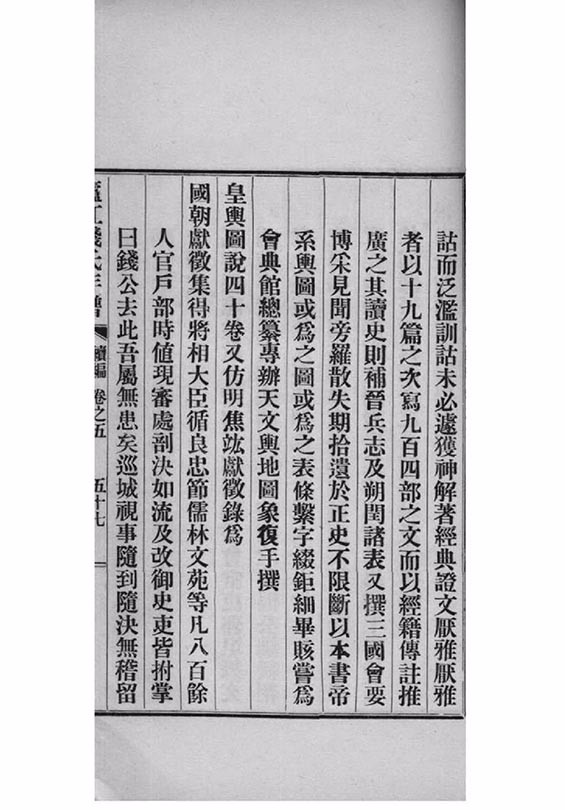 詁而泛濫訓詁未必遽獲神解著經典證文厭雅厭雅
者以十九篇之次寫九百四部之文而以經籍傳註推
廣之其讀史則補晉兵志及朔閏諸表又撰三國會要
博采見聞旁羅散失期拾遺於正史不限斷以本書帝
系輿圖或爲之圖或爲之表條繫字綴鉅細畢賅嘗爲
會典館總纂專辦天文輿地圖象復手撰
皇輿圖說四十卷又仿明焦竑獻徵錄爲
國朝獻徵集得將相大臣循良忠節儒林文苑等凡八百餘
人官戶部時値現審處剖決如流及改御史吏皆拊掌
曰錢公去此吾屬無患矣巡城視事隨到隨決無稽留
錢氏 續編 卷之五 五十七